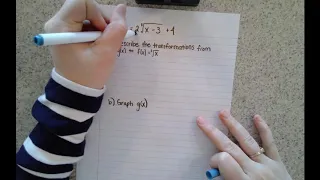 = 2∛x-3 +4
escribe the transformations from
g(x) to f(x)=∛x
b) Graph g(x)